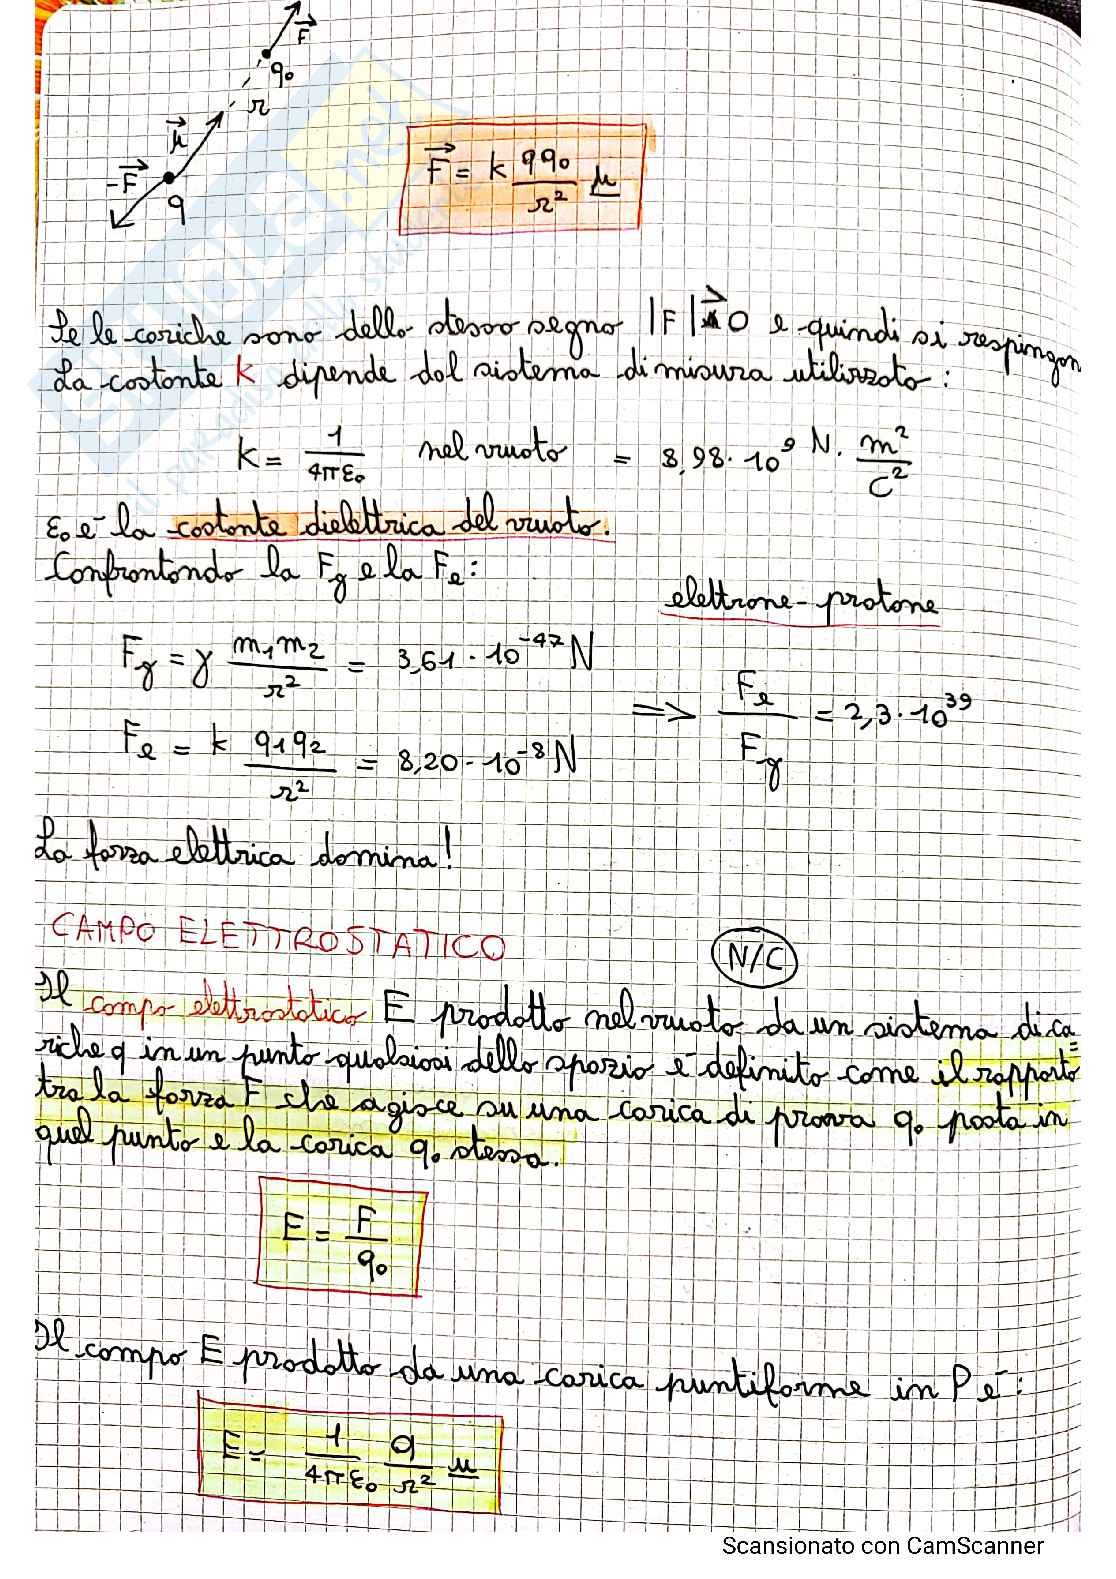 F
q₀
r
μ
-F
q
F = k qq₀/r² μ
Se le cariche sono dello stesso segno |F| > 0 e quindi si respingon
La costante k dipende dal sistema di misura utilizzato:
k = 1/4πε₀ nel vuoto = 8,98 · 10⁹ N · m²/C²
ε₀ è la costante dielettrica del vuoto.
Confrontando la Fg e la Fe:
elettrone-protone
Fg = γ m₁m₂/r² = 3,61 · 10⁻⁴⁷ N
=> Fe/Fg = 2,3 · 10³⁹
Fe = k q₁q₂/r² = 8,20 · 10⁻⁸ N
La forza elettrica domina!
CAMPO ELETTROSTATICO
N/C
Il campo elettrostatico E prodotto nel vuoto da un sistema di ca=
riche q in un punto qualsiasi dello spazio è definito come il rapporto
tra la forza F che agisce su una carica di prova q₀ posta in
quel punto e la carica q₀ stessa.
E = F/q₀
Il campo E prodotto da una carica puntiforme in P è:
E = 1/4πε₀ q/r² μ
Scansionato con CamScanner